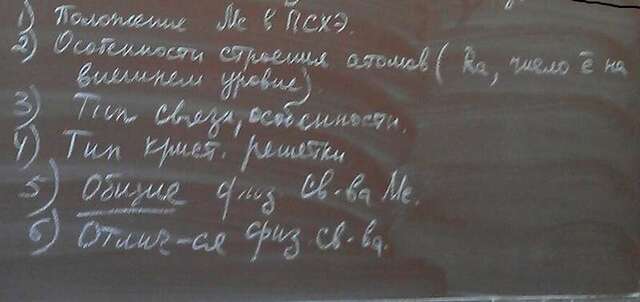 1) Положение Ме в ПСХЭ.
2) Особенности строения атомов ( Ra, число ē на
внешнем уровне).
3) Тип связи, особенности.
4) Тип крист. решетки
5) Общие физ св-ва Ме.
6) Отлич-ся физ св-ва.